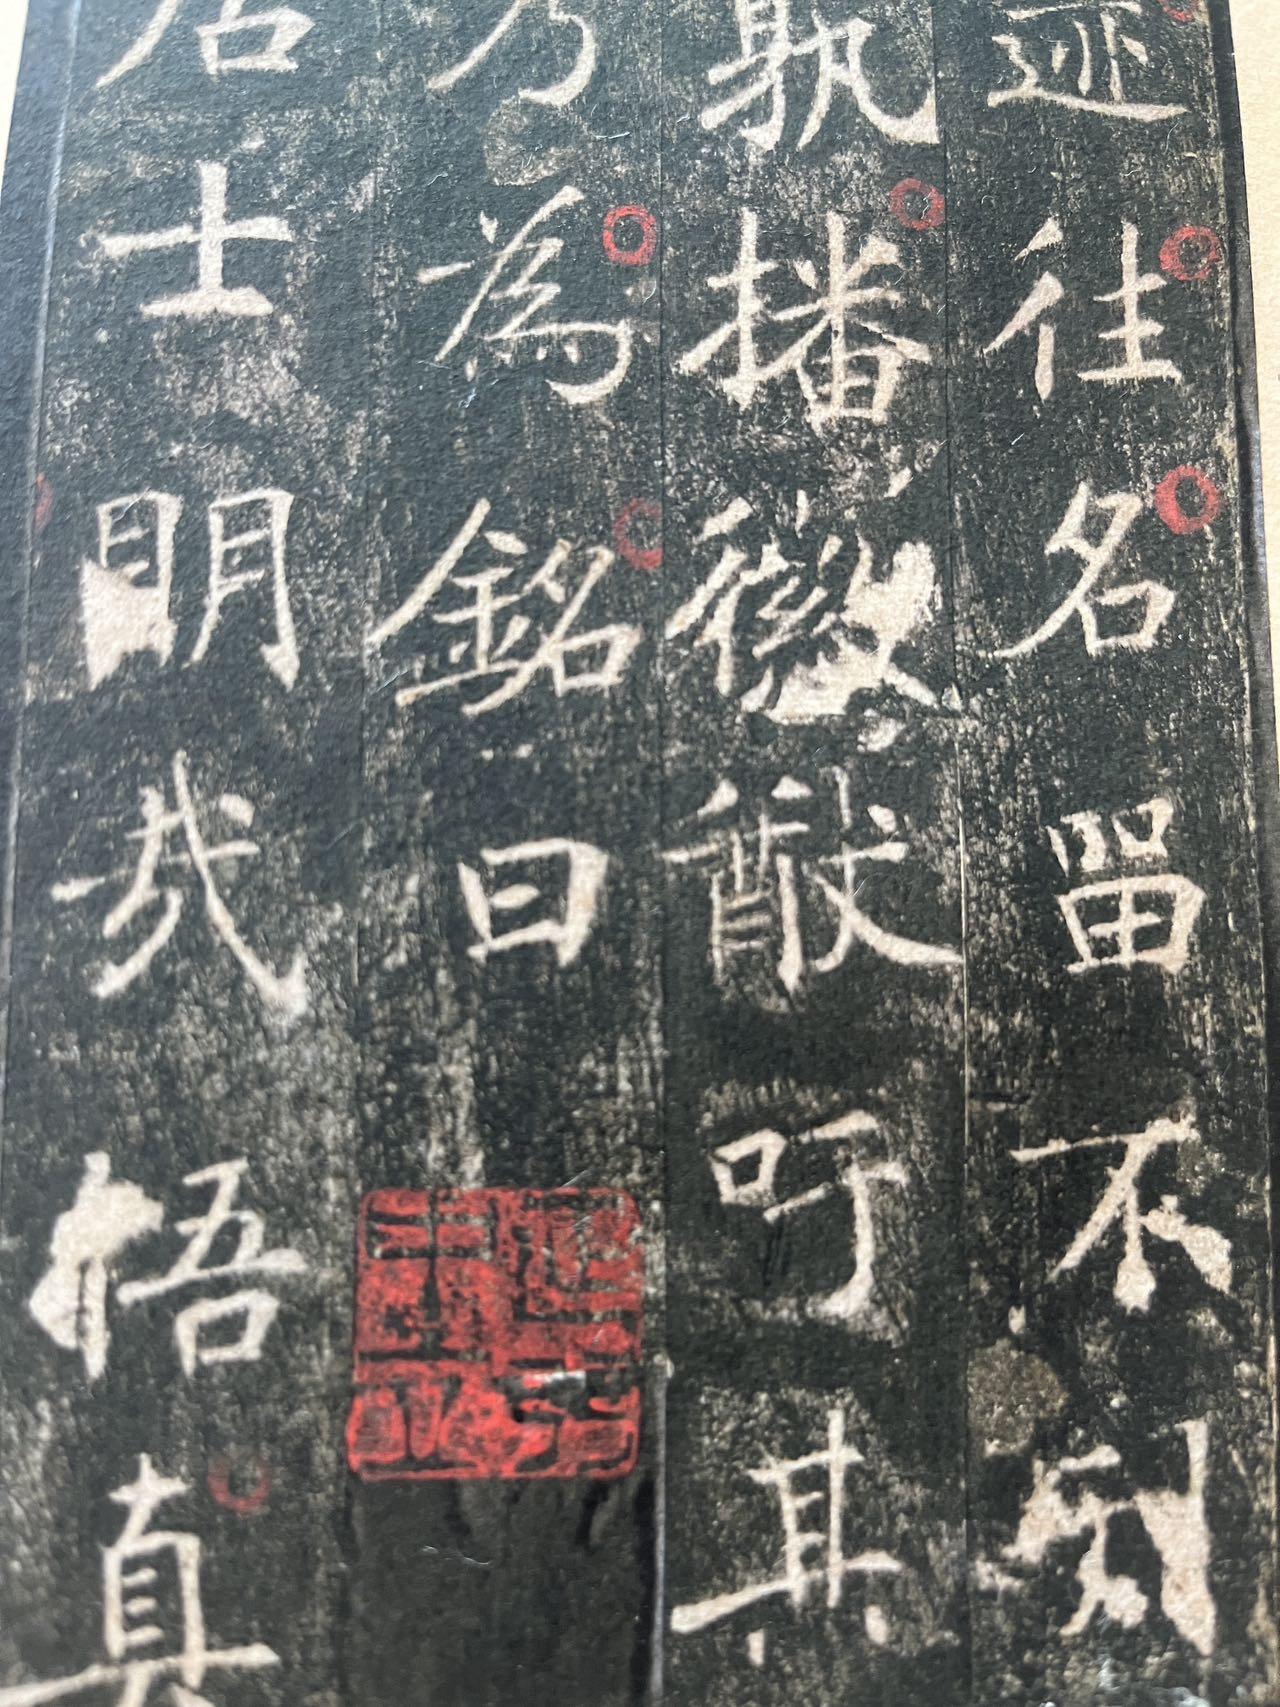 迹往名留不刊
孰播徽猷吁其
乃為銘曰
居士明哉悟真